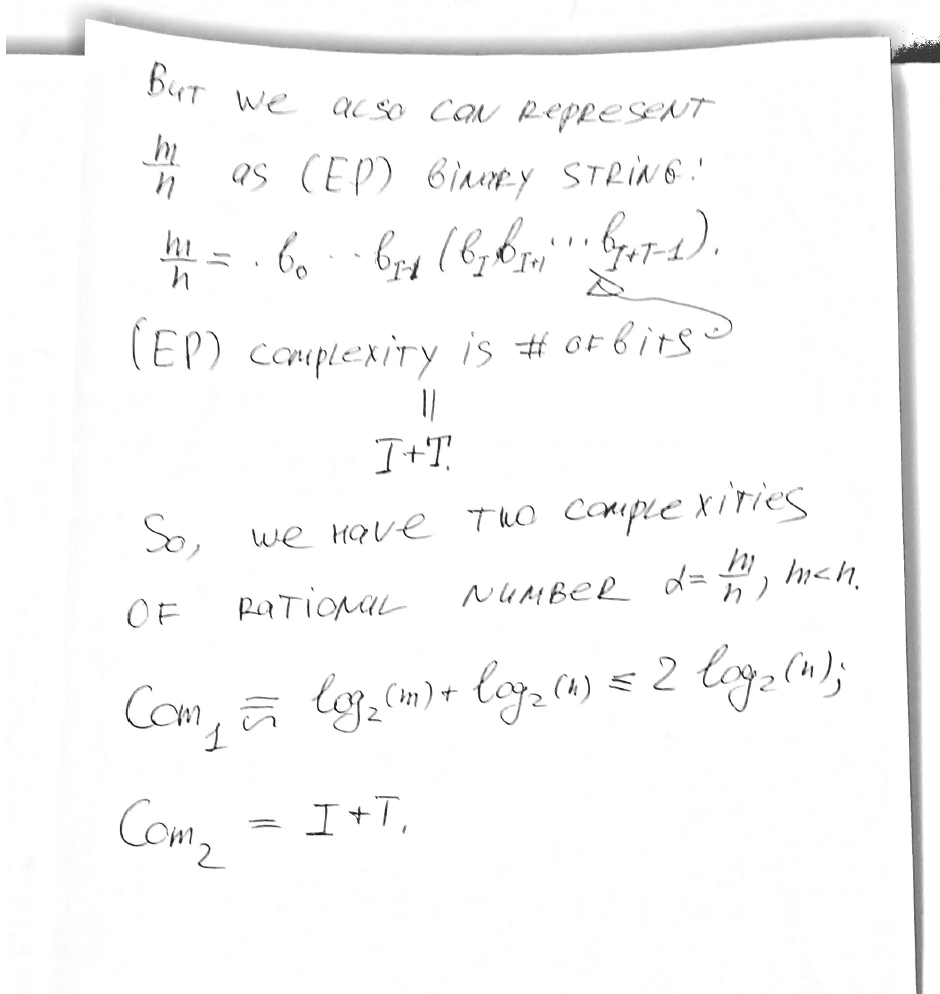 But we also can represent
m/n as (EP) binary string:
m/n = . b₀ ·· b_{I-1} (b_I b_{I+1} ··· b_{I+T-1}).
(EP) complexity is # of bits
||
I+T.
So, we have two complexities
of rational number α = m/n, m<n.
Com₁ ≅ log₂(m) + log₂(n) ≤ 2 log₂(n);
Com₂ = I+T.